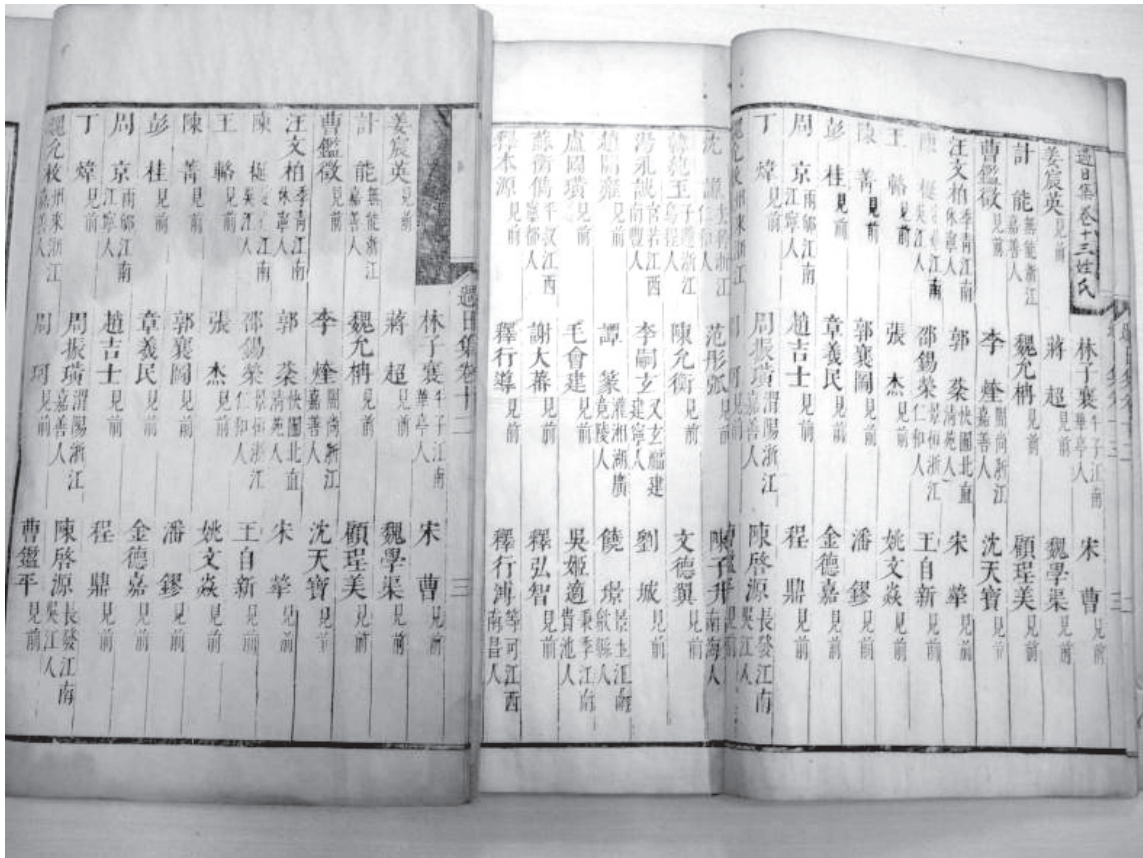 過日集卷十三姓氏 林子襄 牛子江南華亭人 宋曹 見前
姜宸英 見前 蔣超 見前 魏學渠 見前
計能 無能浙江嘉善人 魏允枏 見前 顧珵美 見前
曹鑑徵 見前 李煃 開尚浙江嘉善人 沈天寶 見前
汪文柏 季青江南休寧人 郭棻 快圃北直清苑人 宋犖 見前
陳 江南吳江人 邵錫榮 景桓浙江仁和人 王自新 見前
王輅 見前 張杰 見前 姚文焱 見前
陳菁 見前 郭襄圖 見前 潘鏐 見前
彭桂 見前 章羲民 見前 金德嘉 見前
周京 雨郇江南江寧人 趙吉士 見前 程鼎 見前
丁煒 見前 周振璜 渭陽浙江嘉善人 陳啓源 長發江南吳江人
魏允枚 州來浙江 周珂 見前
沈謙 浙江仁和人 范彤弧 見前 陳子升 南海人
韓純玉 子蘧浙江烏程人 陳允衡 見前 文德翼 見前
湯永誠 官若江西南豐人 李嗣玄 又玄福建建寧人 劉城 見前
趙 見前 譚篆 灌湘湖廣竟陵人 饒璟 景玉江南歙縣人
盧國璜 見前 毛會建 見前 吳姬適 秉季江南貴池人
蘇衡 江西寧都人 謝大蕃 見前 釋弘智 見前
釋本源 見前 釋行導 見前 釋行溥 等可江西南昌人
過日集卷十三 三
過日集卷十二 三
林子襄 牛子江南華亭人 宋曹 見前
姜宸英 見前 蔣超 見前 魏學渠 見前
計能 無能浙江嘉善人 魏允枏 見前 顧珵美 見前
曹鑑徵 見前 李煃 開尚浙江嘉善人 沈天寶 見前
汪文柏 季青江南休寧人 郭棻 快圃北直清苑人 宋犖 見前
陳 江南吳江人 邵錫榮 景桓浙江仁和人 王自新 見前
王輅 見前 張杰 見前 姚文焱 見前
陳菁 見前 郭襄圖 見前 潘鏐 見前
彭桂 見前 章羲民 見前 金德嘉 見前
周京 雨郇江南江寧人 趙吉士 見前 程鼎 見前
丁煒 見前 周振璜 渭陽浙江嘉善人 陳啓源 長發江南吳江人
魏允枚 州來浙江嘉善人 周珂 見前 曹鑑平 見前